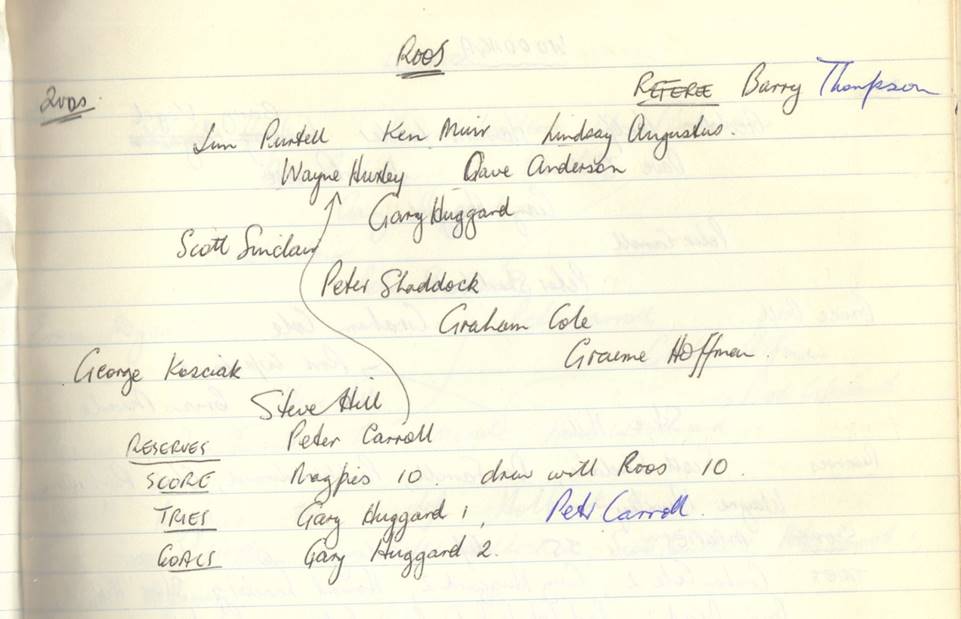 ROOS
2nds.
REFEREE Barry Thompson
Jim Purtell Ken Muir Lindsay Augustus.
Wayne Huxley Dave Anderson
Gary Huggard
Scott Sinclair
Peter Shaddock
Graham Cole
Graeme Hoffman.
George Kosciak
Steve Hill
RESERVES Peter Carroll
SCORE Magpies 10 drew with Roos 10.
TRIES Gary Huggard 1, Peter Carroll.
GOALS Gary Huggard 2.